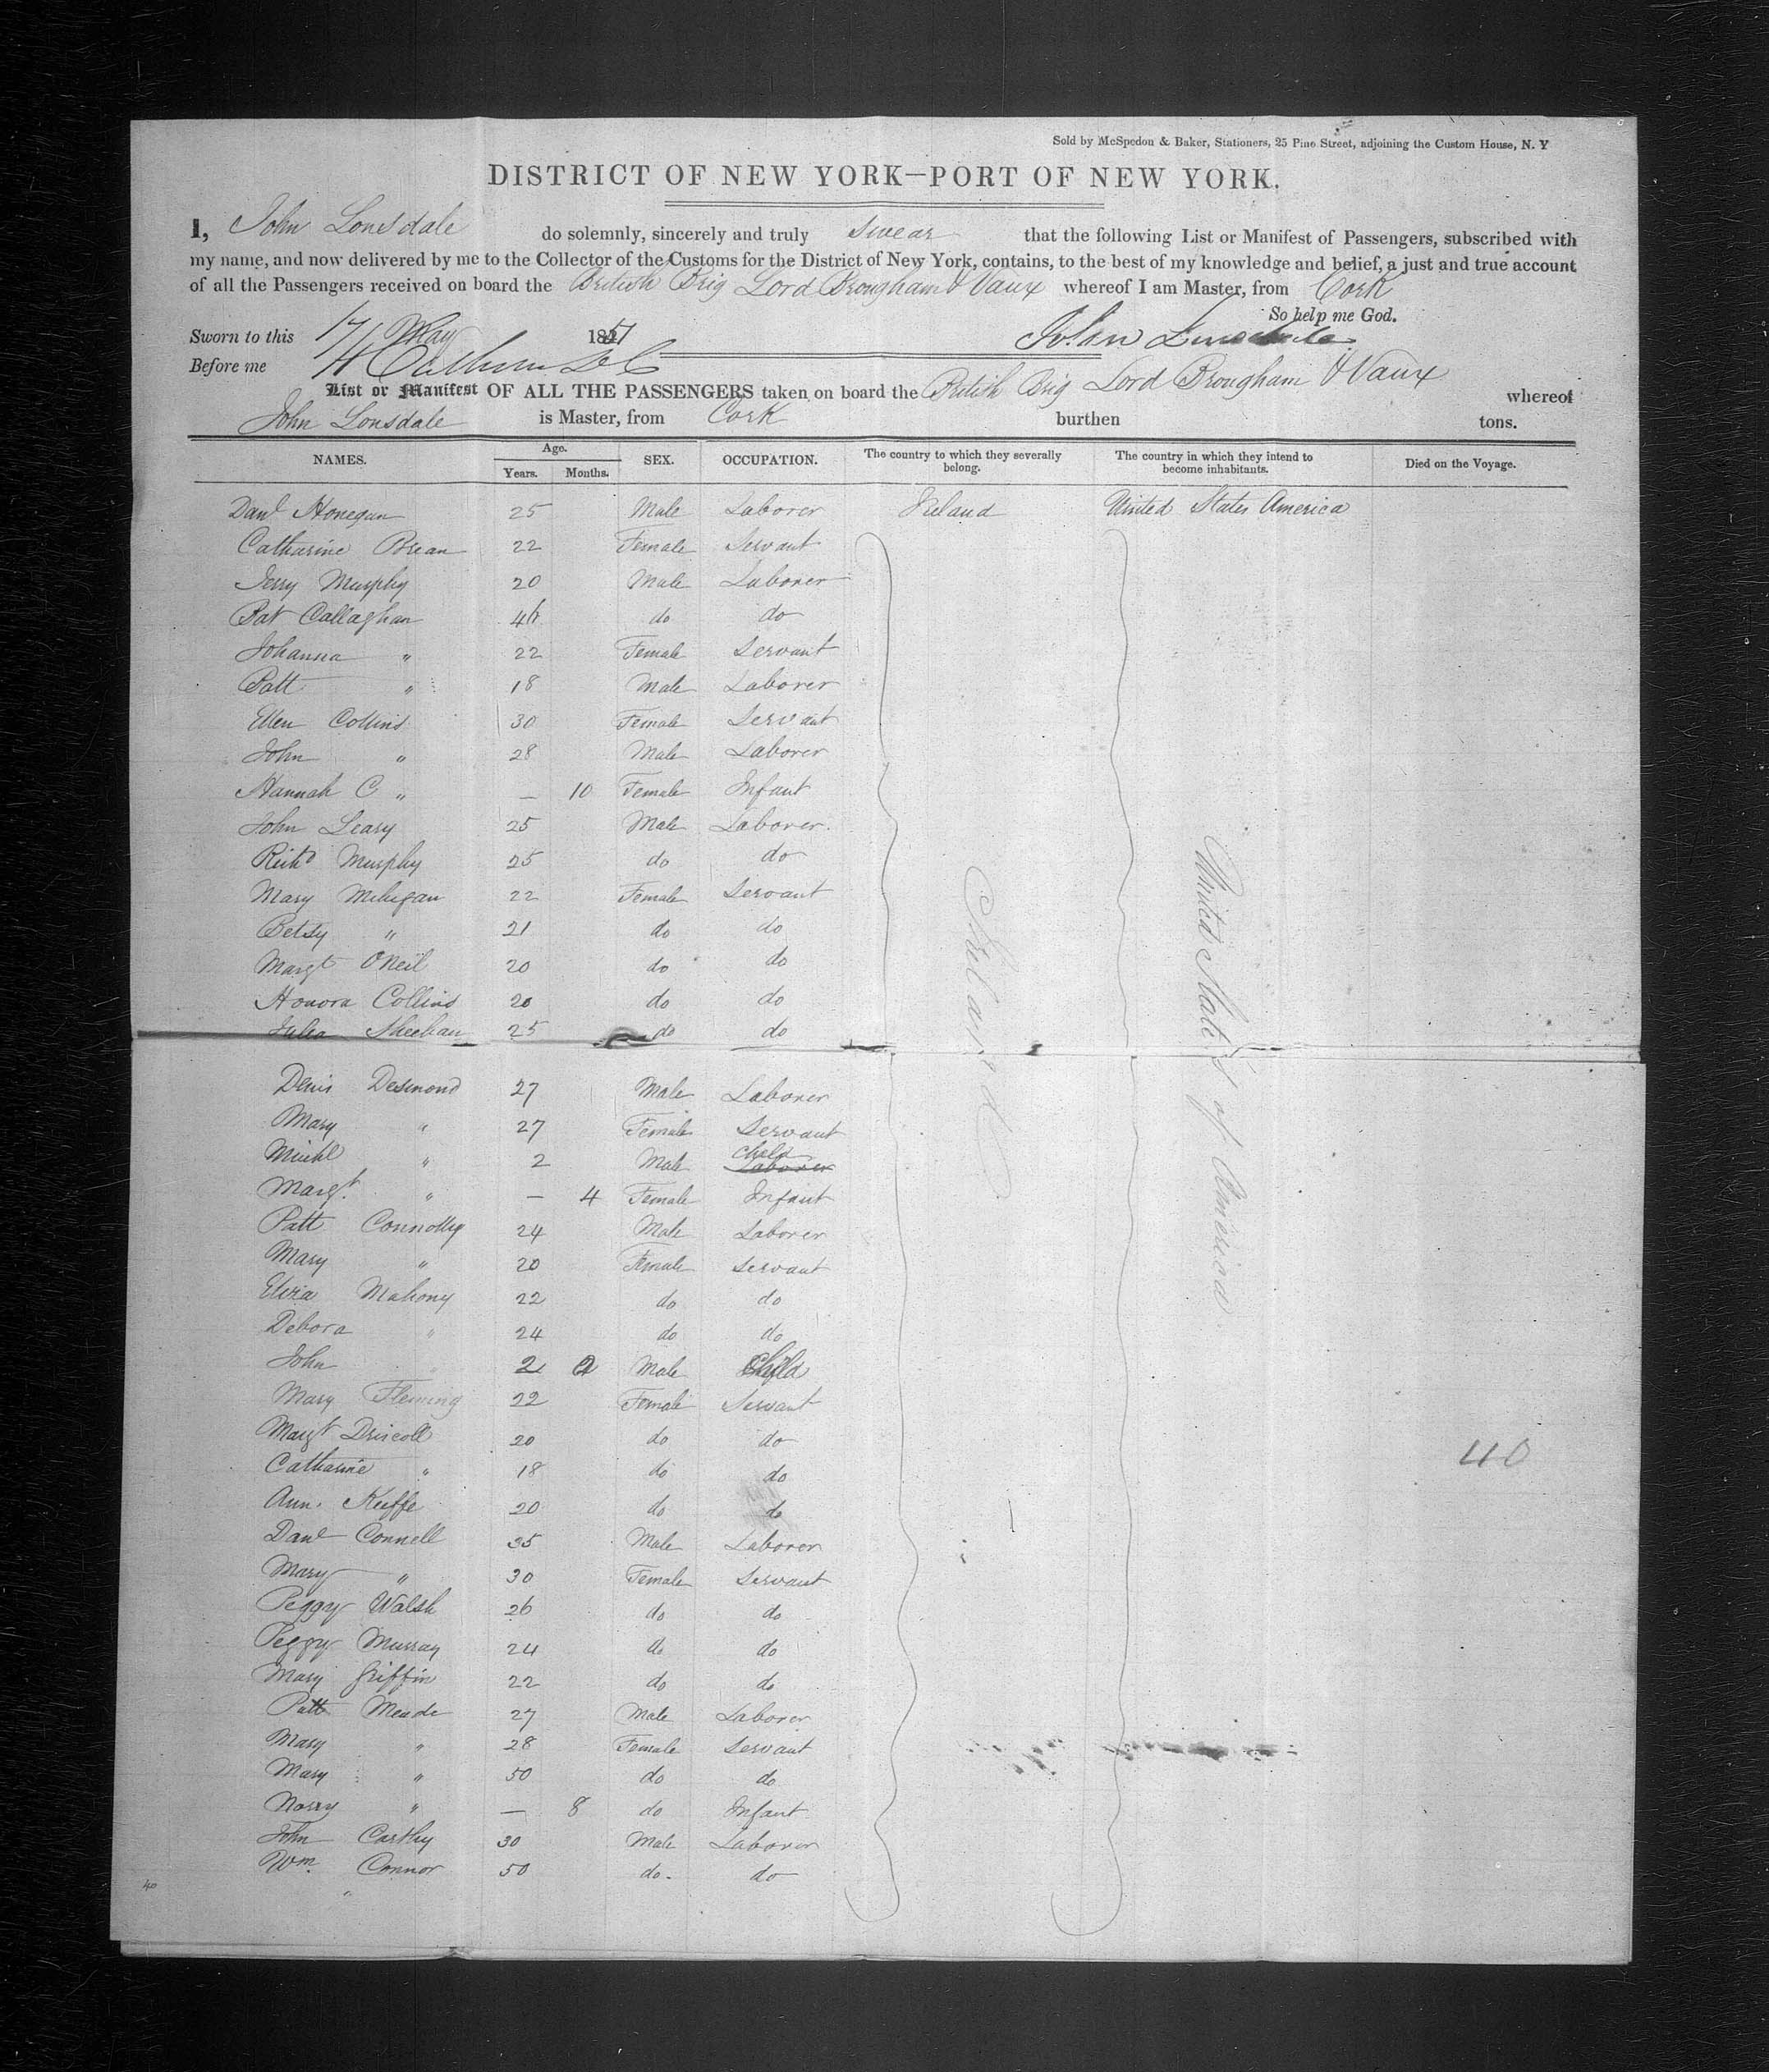 Sold by McSpedon & Baker, Stationers, 25 Pine Street, adjoining the Custom House, N. Y
DISTRICT OF NEW YORK—PORT OF NEW YORK.
I, John Lonsdale do solemnly, sincerely and truly swear that the following List or Manifest of Passengers, subscribed with
my name, and now delivered by me to the Collector of the Customs for the District of New York, contains, to the best of my knowledge and belief, a just and true account
of all the Passengers received on board the British Brig Lord Brougham & Vaux whereof I am Master, from Cork
So help me God.
Sworn to this 17 May 1851 John Lonsdale
Before me
List or Manifest OF ALL THE PASSENGERS taken on board the British Brig Lord Brougham & Vaux whereof
John Lonsdale is Master, from Cork burthen tons.
NAMES. Age. Years. Months. SEX. OCCUPATION. The country to which they severally belong. The country in which they intend to become inhabitants. Died on the Voyage.
Danl Honegan 25 Male Laborer Ireland United States America
Catharine Brean 22 Female Servant
Jerry Murphy 20 Male Laborer
Pat Callaghan do do
Johanna " 22 Female Servant
Patt " 18 Male Laborer
Ellen Collins 30 Female Servant
John " 28 Male Laborer
Hannah C " — 10 Female Infant
John Leary 25 Male Laborer.
Richd Murphy 25 do do
Mary Mehegan 22 Female Servant
Betsy " 21 do do
Margt O'Neil 20 do do
Honora Collins 20 do do
Julia Sheehan 25 do do
Ireland
United States of America
Denis Desmond 27 Male Laborer
Mary " 27 Female Servant
Michl " 2 Male Child Laborer
Margt " — 4 Female Infant
Patt Connolly 24 Male Laborer
Mary " 20 Female Servant
Eliza Mahony 22 do do
Debora " 24 do do
John " 2 Male Child
Mary Fleming 22 Female Servant
Margt Driscoll 20 do do
40
Catharine " 18 do do
Ann. Keiffe 20 do do
Danl Connell 35 Male Laborer
Mary " 30 Female Servant
Peggy Walsh 26 do do
Peggy Murray 24 do do
Mary Griffin 22 do do
Patt Meade 27 Male Laborer
Mary " 28 Female Servant
Mary " 50 do do
Norry " — 8 do Infant
John Carthy 30 Male Laborer
Wm. Connor 50 do. do
40 "